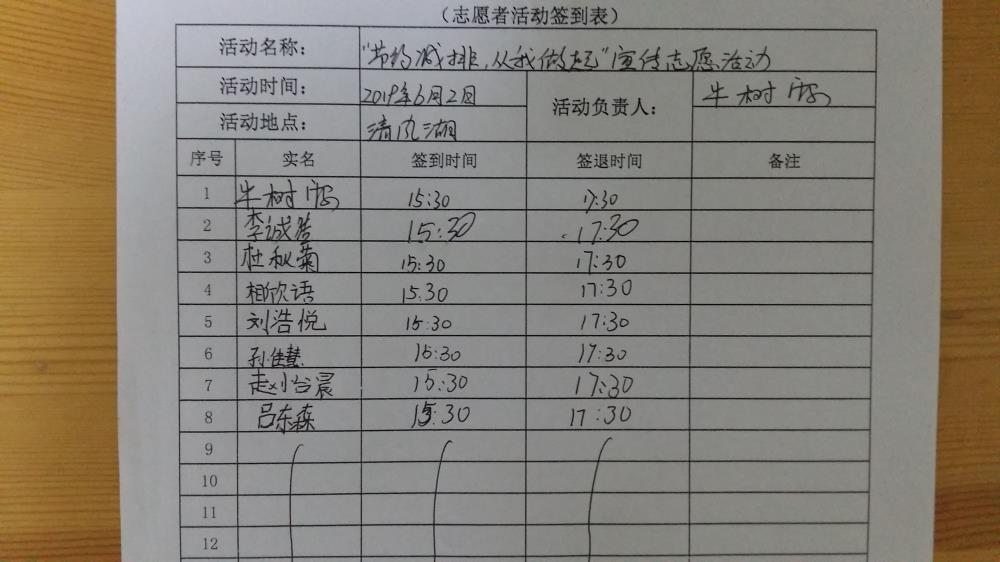 （志愿者活动签到表）
活动名称： "节约减排，从我做起"宣传志愿活动
活动时间： 2019年6月2日 活动负责人： 牛树
活动地点： 清风湖
序号 实名 签到时间 签退时间 备注
1 牛树 15:30 17:30
2 李诚 15:30 17:30
3 杜秋菊 15:30 17:30
4 相欣语 15:30 17:30
5 刘浩悦 15:30 17:30
6 孙佳慧 15:30 17:30
7 赵 晨 15:30 17:30
8 吕东森 15:30 17:30
9
10
11
12